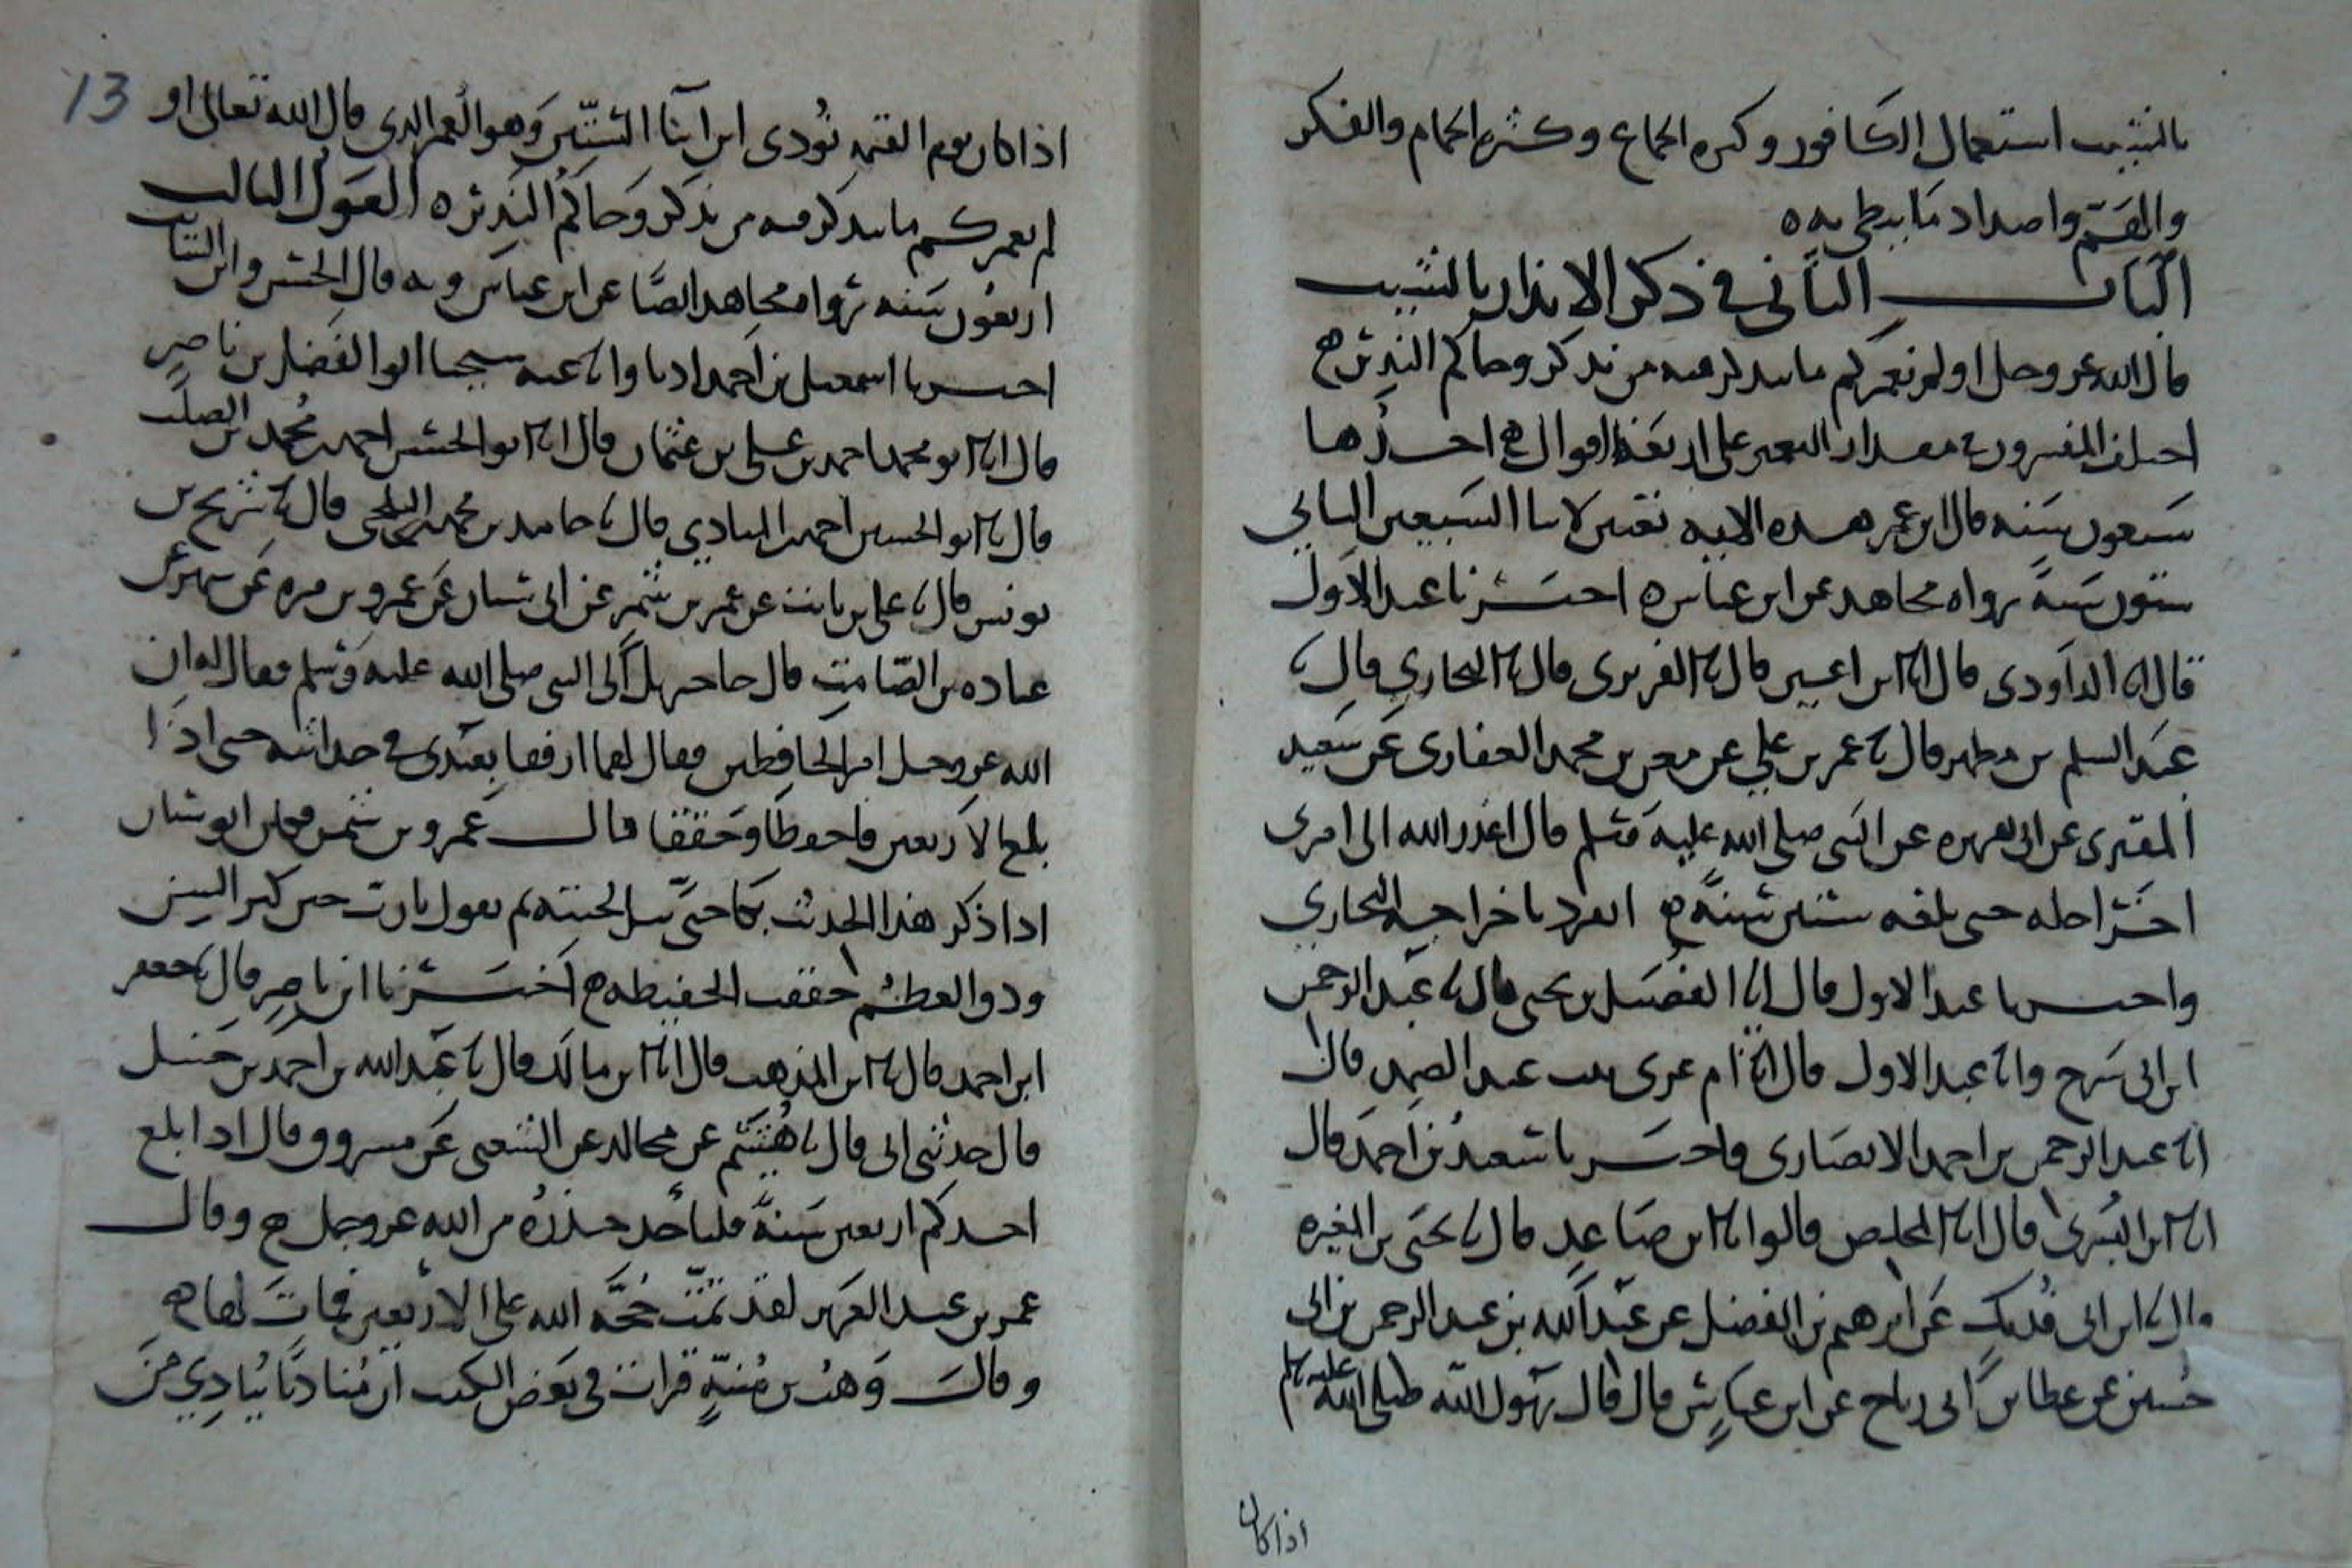 بالشيب استعمال الكافور وكثرة الجماع وكثرة الحمام والفكر
والهم واضداد ما يبطى به ه
الباب الثاني في ذكر الانذار بالشيب
قال الله عز وجل اولم نعمركم ما يتذكر فيه من تذكر وجاكم النذير
اختلف المفسرون في مقدار التعمير على اربعة اقوال احدها
سبعون سنة قال ابن عمر هذه الاية تعيير لابنا السبعين الثاني
ستون سنة رواه مجاهد عن ابن عباس ه اخبرنا عبد الاول
قال انا الداودي قال انا ابن اعين قال نا الفربرى قال نا البخاري قال نا
عبد السلم بن مطهر قال نا عمر بن علي عن معن بن محمد الغفارى عن سعيد
المقبرى عن ابى هريره عن النبي صلى الله عليه وسلم قال اعذر الله الى امرى
اخر اجله حتى بلغه ستين سنة انفرد باخراجه البخاري
واخبرنا عبد الاول قال انا الفضيل بن يحيى قال نا عبد الرحمن
ابن ابى شريح وانا عبد الاول قال انا ام عزى بنت عبد الصمد قالت
انا عبد الرحمن بن احمد الانصارى واخبرنا سعيد بن احمد قال
انا ابن البسرى قال انا المخلص قالوا نا ابن صاعد قال نا يحيى بن المغيره
قال نا ابن ابى فديك عن ابرهيم بن الفضل عن عبد الله بن عبد الرحمن بن ابى
حسين عن عطا بن ابى رباح عن ابن عباس قال قال رسول الله صلى الله عليه وسلم
اذا كان
13
اذا كان يوم القيمه نودى اين ابنا الستين وهو العمر الذي قال الله تعالى او
لم نعمركم ما يتذكر فيه من تذكر وجاكم النذير ه القول الثالث
اربعون سنه رواه مجاهد ايضا عن ابن عباس وبه قال الحسن وابن السائب
اخبرنا اسمعيل بن احمد اذنا وانا عنه شيخنا ابو الفضل بن ناصر
قال انا ابو محمد احمد بن على بن عثمان قال انا ابو الحسن احمد بن محمد بن الصلت
قال نا ابو الحسين احمد بن المنادي قال نا حامد بن محمد البلخى قال نا شريح بن
يونس قال نا على بن ثابت عن عمر بن شمر عن ابى سنان عن عمرو بن مره عن شهر عن
عباده بن الصامت قال جا جبريل الى النبى صلى الله عليه وسلم فقال له ان
الله عز وجل امر الحافظين فقال لهما ارفقا بعبدى في حداثته حتى اذا
بلغ الاربعين فاحفظا وحققا قال عمرو بن شمر فكان ابو سنان
اذا ذكر هذا الحديث بكا حتى تبتل لحيته ثم يقول يارب حين كبر السن
ودق العظم حققت الحفيظه اخبرنا ابن ناصر قال نا جعفر
ابن احمد قال نا ابن المذهب قال انا ابن مالك قال نا عبد الله بن احمد بن حنبل
قال حدثنى ابى قال نا هشيم عن مجالد عن الشعبى عن مسروق قال اذا بلغ
احدكم اربعين سنة فلياخذ حذره من الله عز وجل وقال
عمر بن عبد العزيز لقد تمت حجه الله على الاربعين فمات لها
وقال وهب بن منبه قرات في بعض الكتب ان مناديا ينادي من